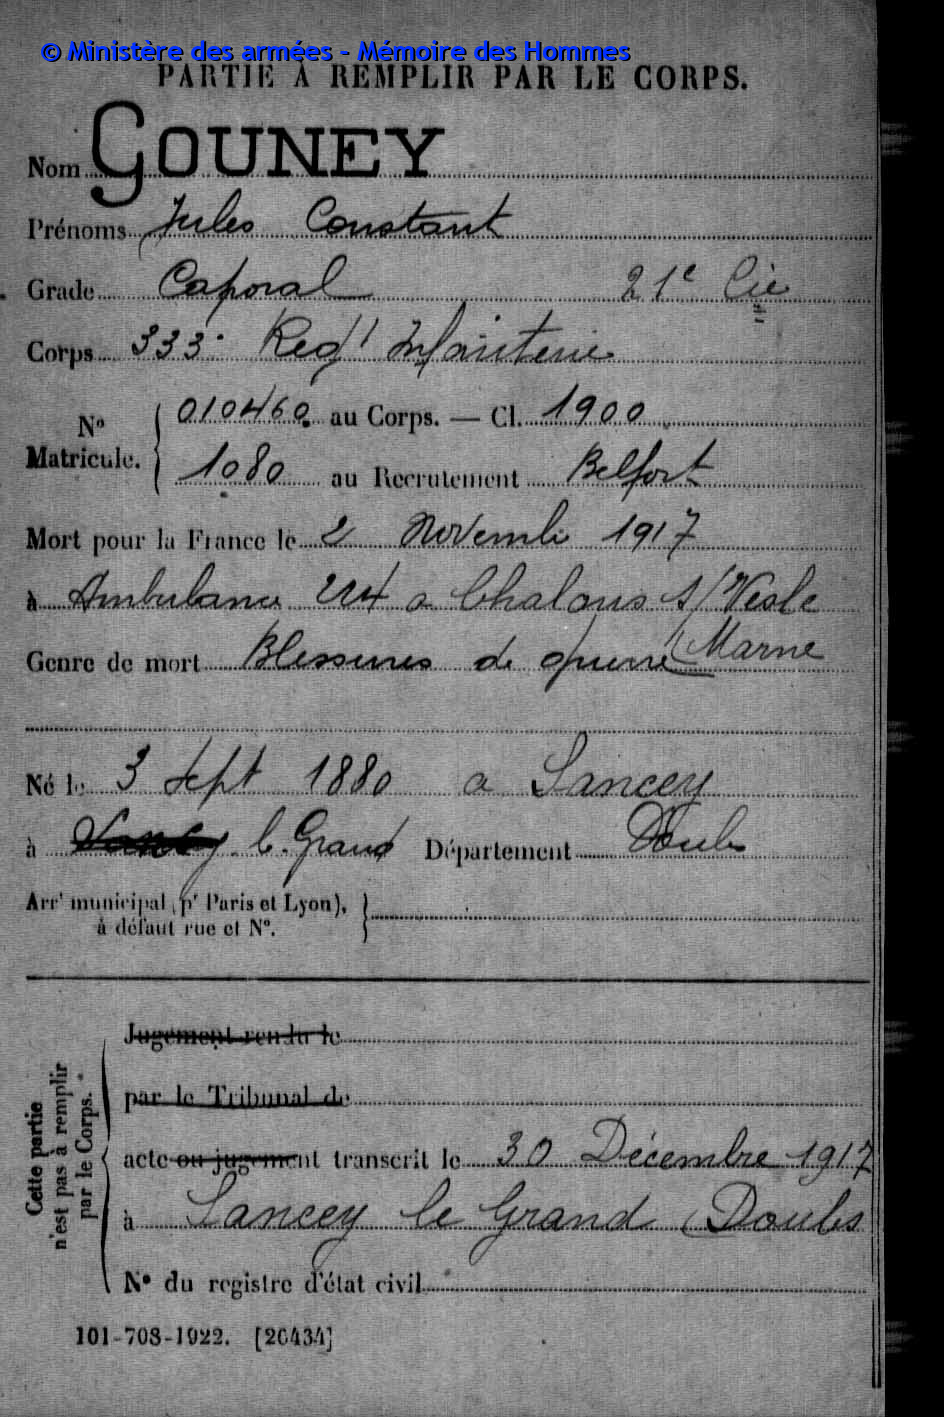 © Ministère des armées - Mémoire des Hommes
PARTIE À REMPLIR PAR LE CORPS.
Nom GOUNEY
Prénoms Jules Constant
Grade Caporal 21e Cie
Corps 333e Regt Infanterie
No Matricule. 010460 au Corps. — Cl. 1900
1080 au Recrutement Belfort
Mort pour la France le 2 Novembre 1917
à Ambulance 224 a Chalons s/Vesle
(Marne
Genre de mort Blessures de guerre
Né le 3 Sept 1880 a Sancey
à le Grand Département Doubs
Arrt municipal (pr Paris et Lyon),
à défaut rue et No.
Cette partie
n'est pas à remplir
par le Corps.
Jugement rendu le
par le Tribunal de
acte ou jugement transcrit le 30 Décembre 1917
à Sancey le Grand (Doubs
No du registre d'état civil
101-708-1922. [26434]